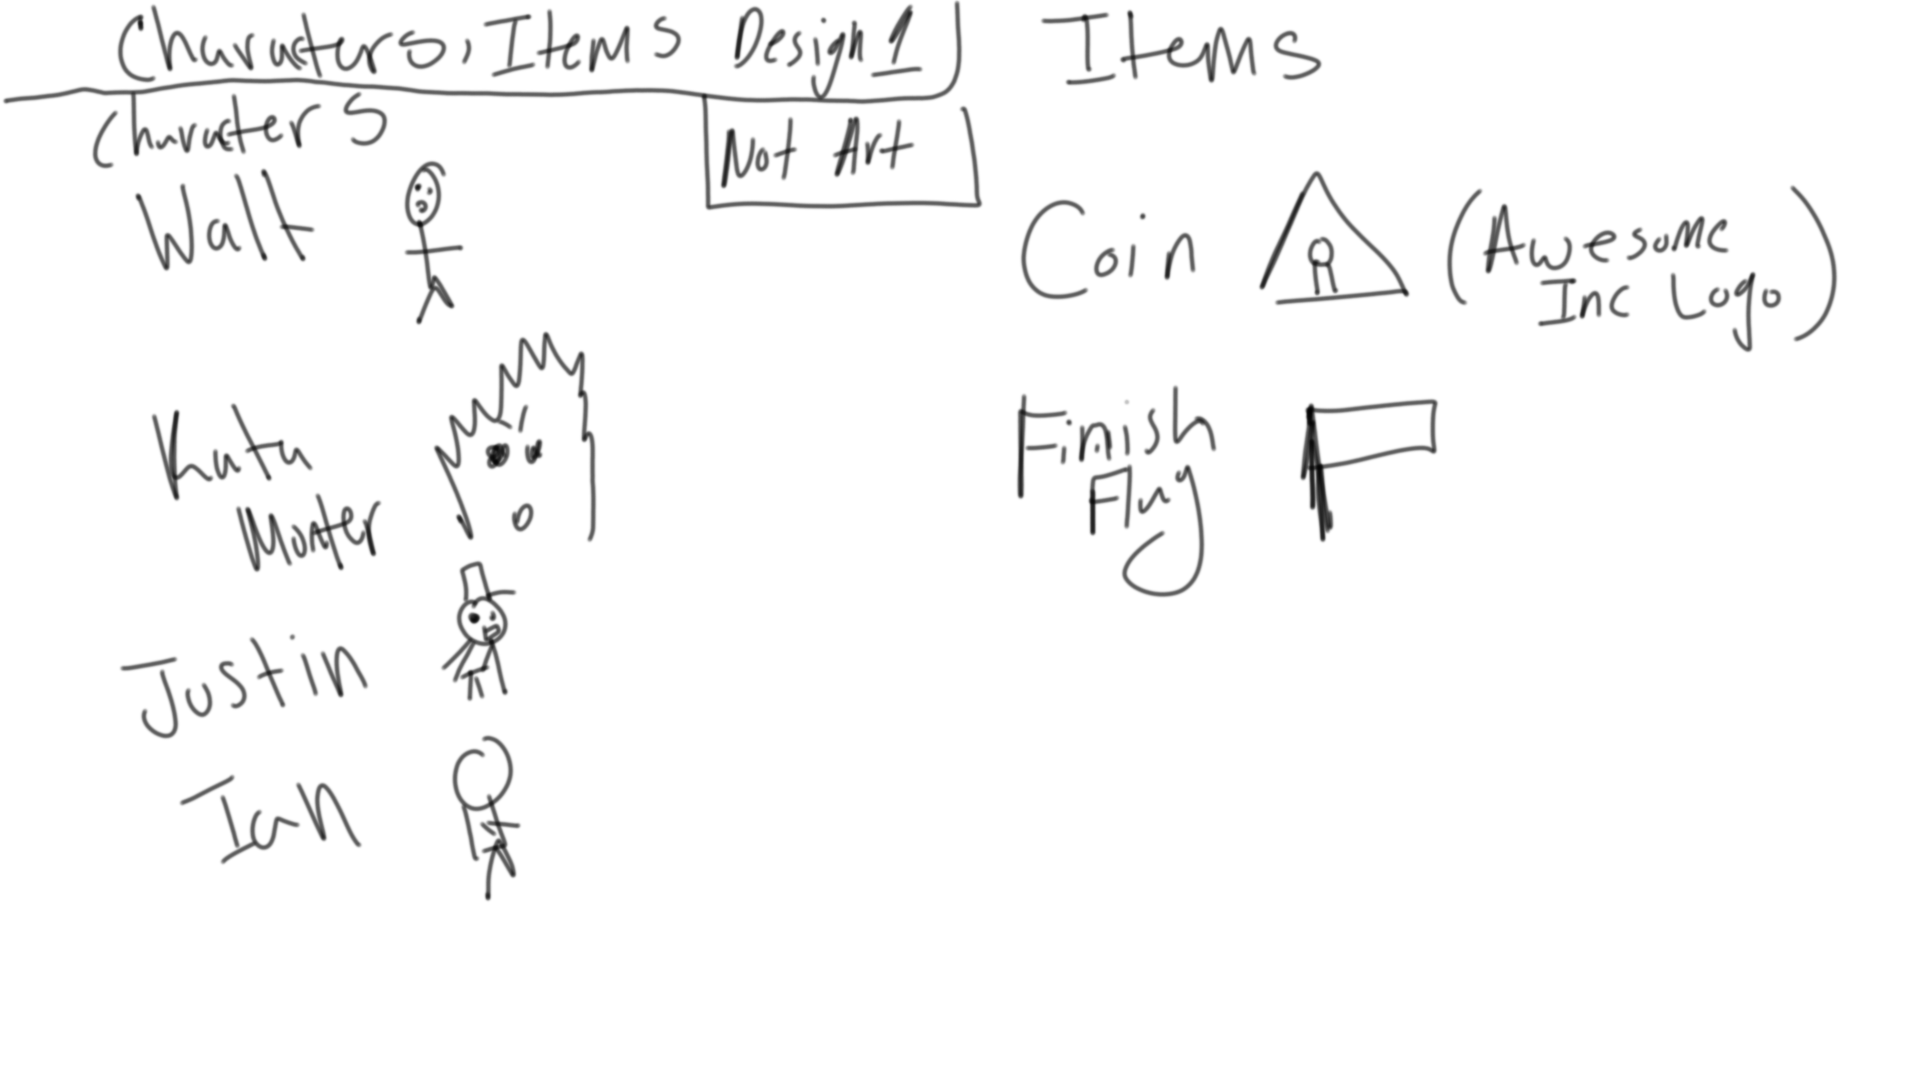 Characters, Items Design 1
Characters
Not Art
Walt
Justin
Ian
Items
Coin
(Awesome
Inc Logo)
Finish
Flag